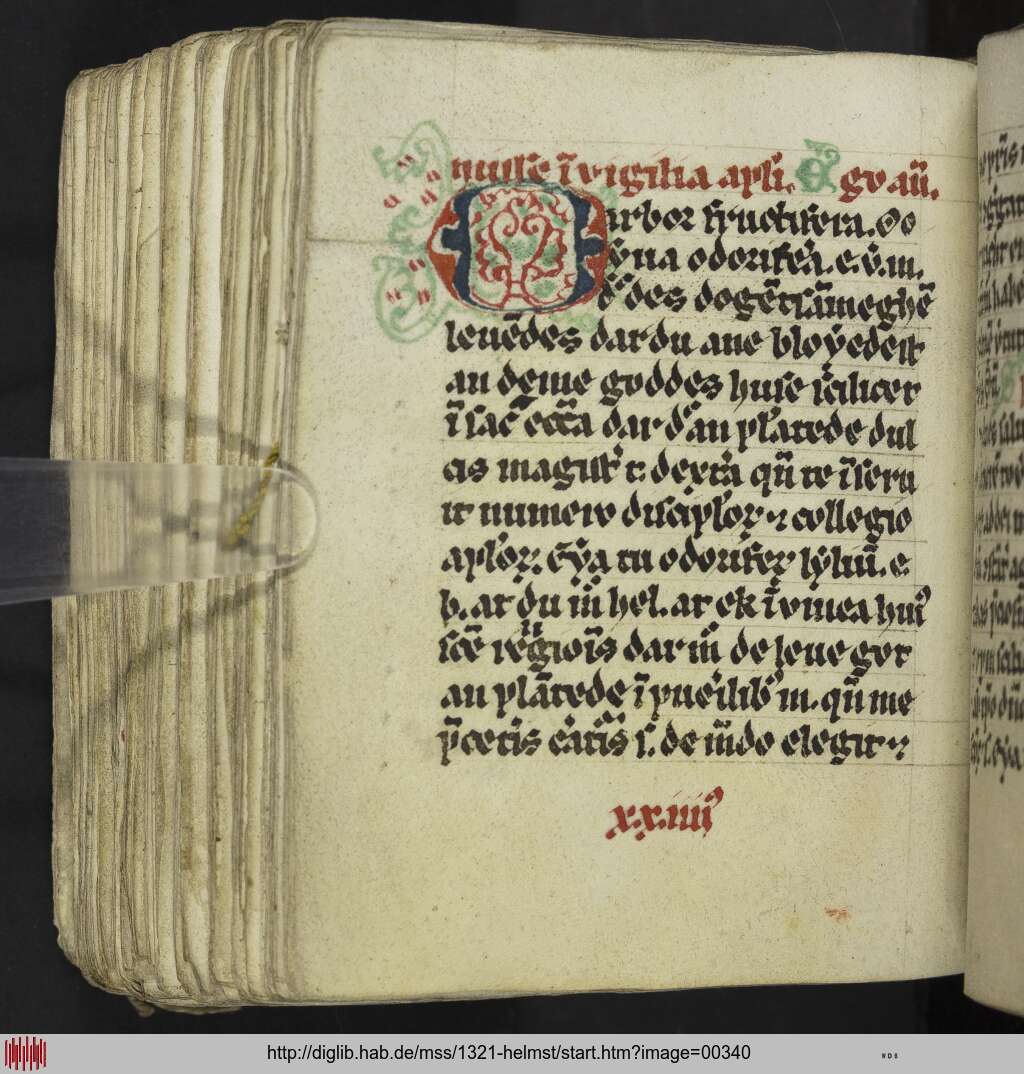 misse ī vigilia apl'i. Ego aū.
O arbor fructifera. Oo
lyna odorifera. e. ē. m.
des dogētsāmeghē
leuēdes dat du ane bloyedest
an deme goddes huse scilicet
ī sāc ecc̄a dar d' an plātede dul
cis magist' t: dextra qn̄ te īseru
it numero discipl'or ⁊ collegio
apl'or. Eya tu odorifer lyliū. e.
b. at du m̄ hel. at ek ī vinea huī
scē religiōis dar m̄ de leue got
an plātede ī puerilib' m. qn̄ me
p̄ cetis c̄atis s. de mūdo elegit ⁊
xx.iiii
http://diglib.hab.de/mss/1321-helmst/start.htm?image=00340